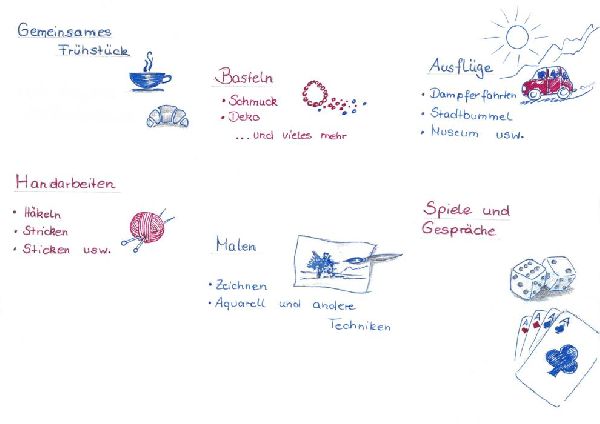 Gemeinsames
Frühstück
Basteln
• Schmuck
• Deko
...und vieles mehr
Ausflüge
• Dampferfahrten
• Stadtbummel
• Museum usw.
Handarbeiten
• Häkeln
• Stricken
• Sticken usw.
Malen
• Zeichnen
• Aquarell und andere
Techniken
Spiele und
Gespräche
A
A
A
A